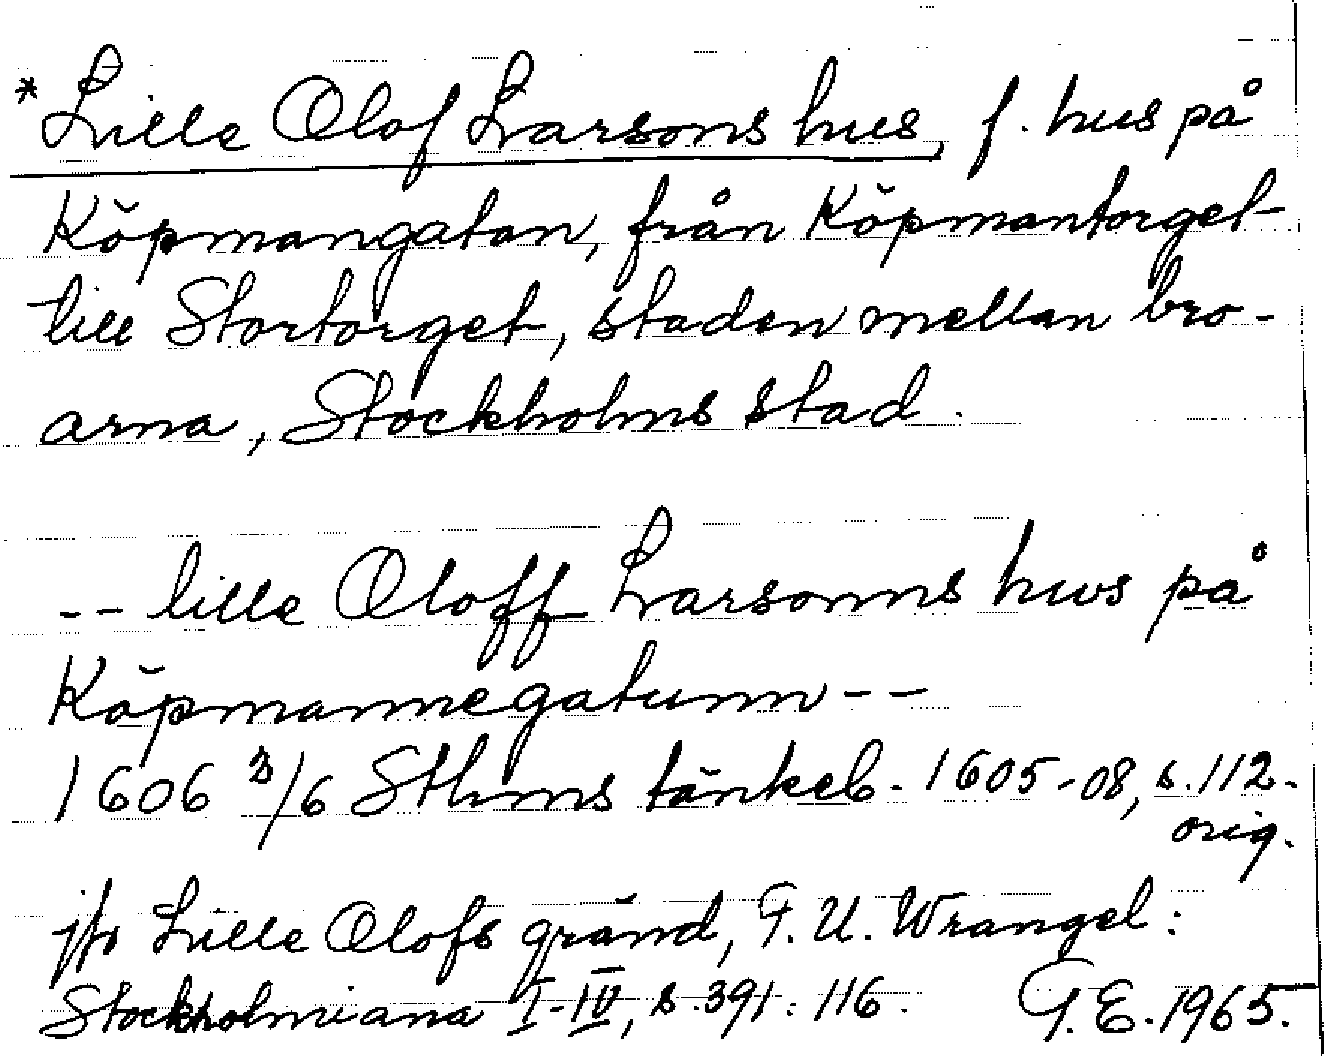 * Lille Olof Larsons hus, f. hus på
Köpmangatan, från Köpmantorget
till Stortorget, staden mellan bro-
arna, Stockholms stad.
-- lille Oloff Larsonns hws på
Köpmannegatunn --
1606 3/6 Sthms tänkeb. 1605-08, s. 112.
orig.
jfr Lille Olofs gränd, F. U. Wrangel:
Stockholmiana I-IV, s. 391: 116. G. E. 1965.